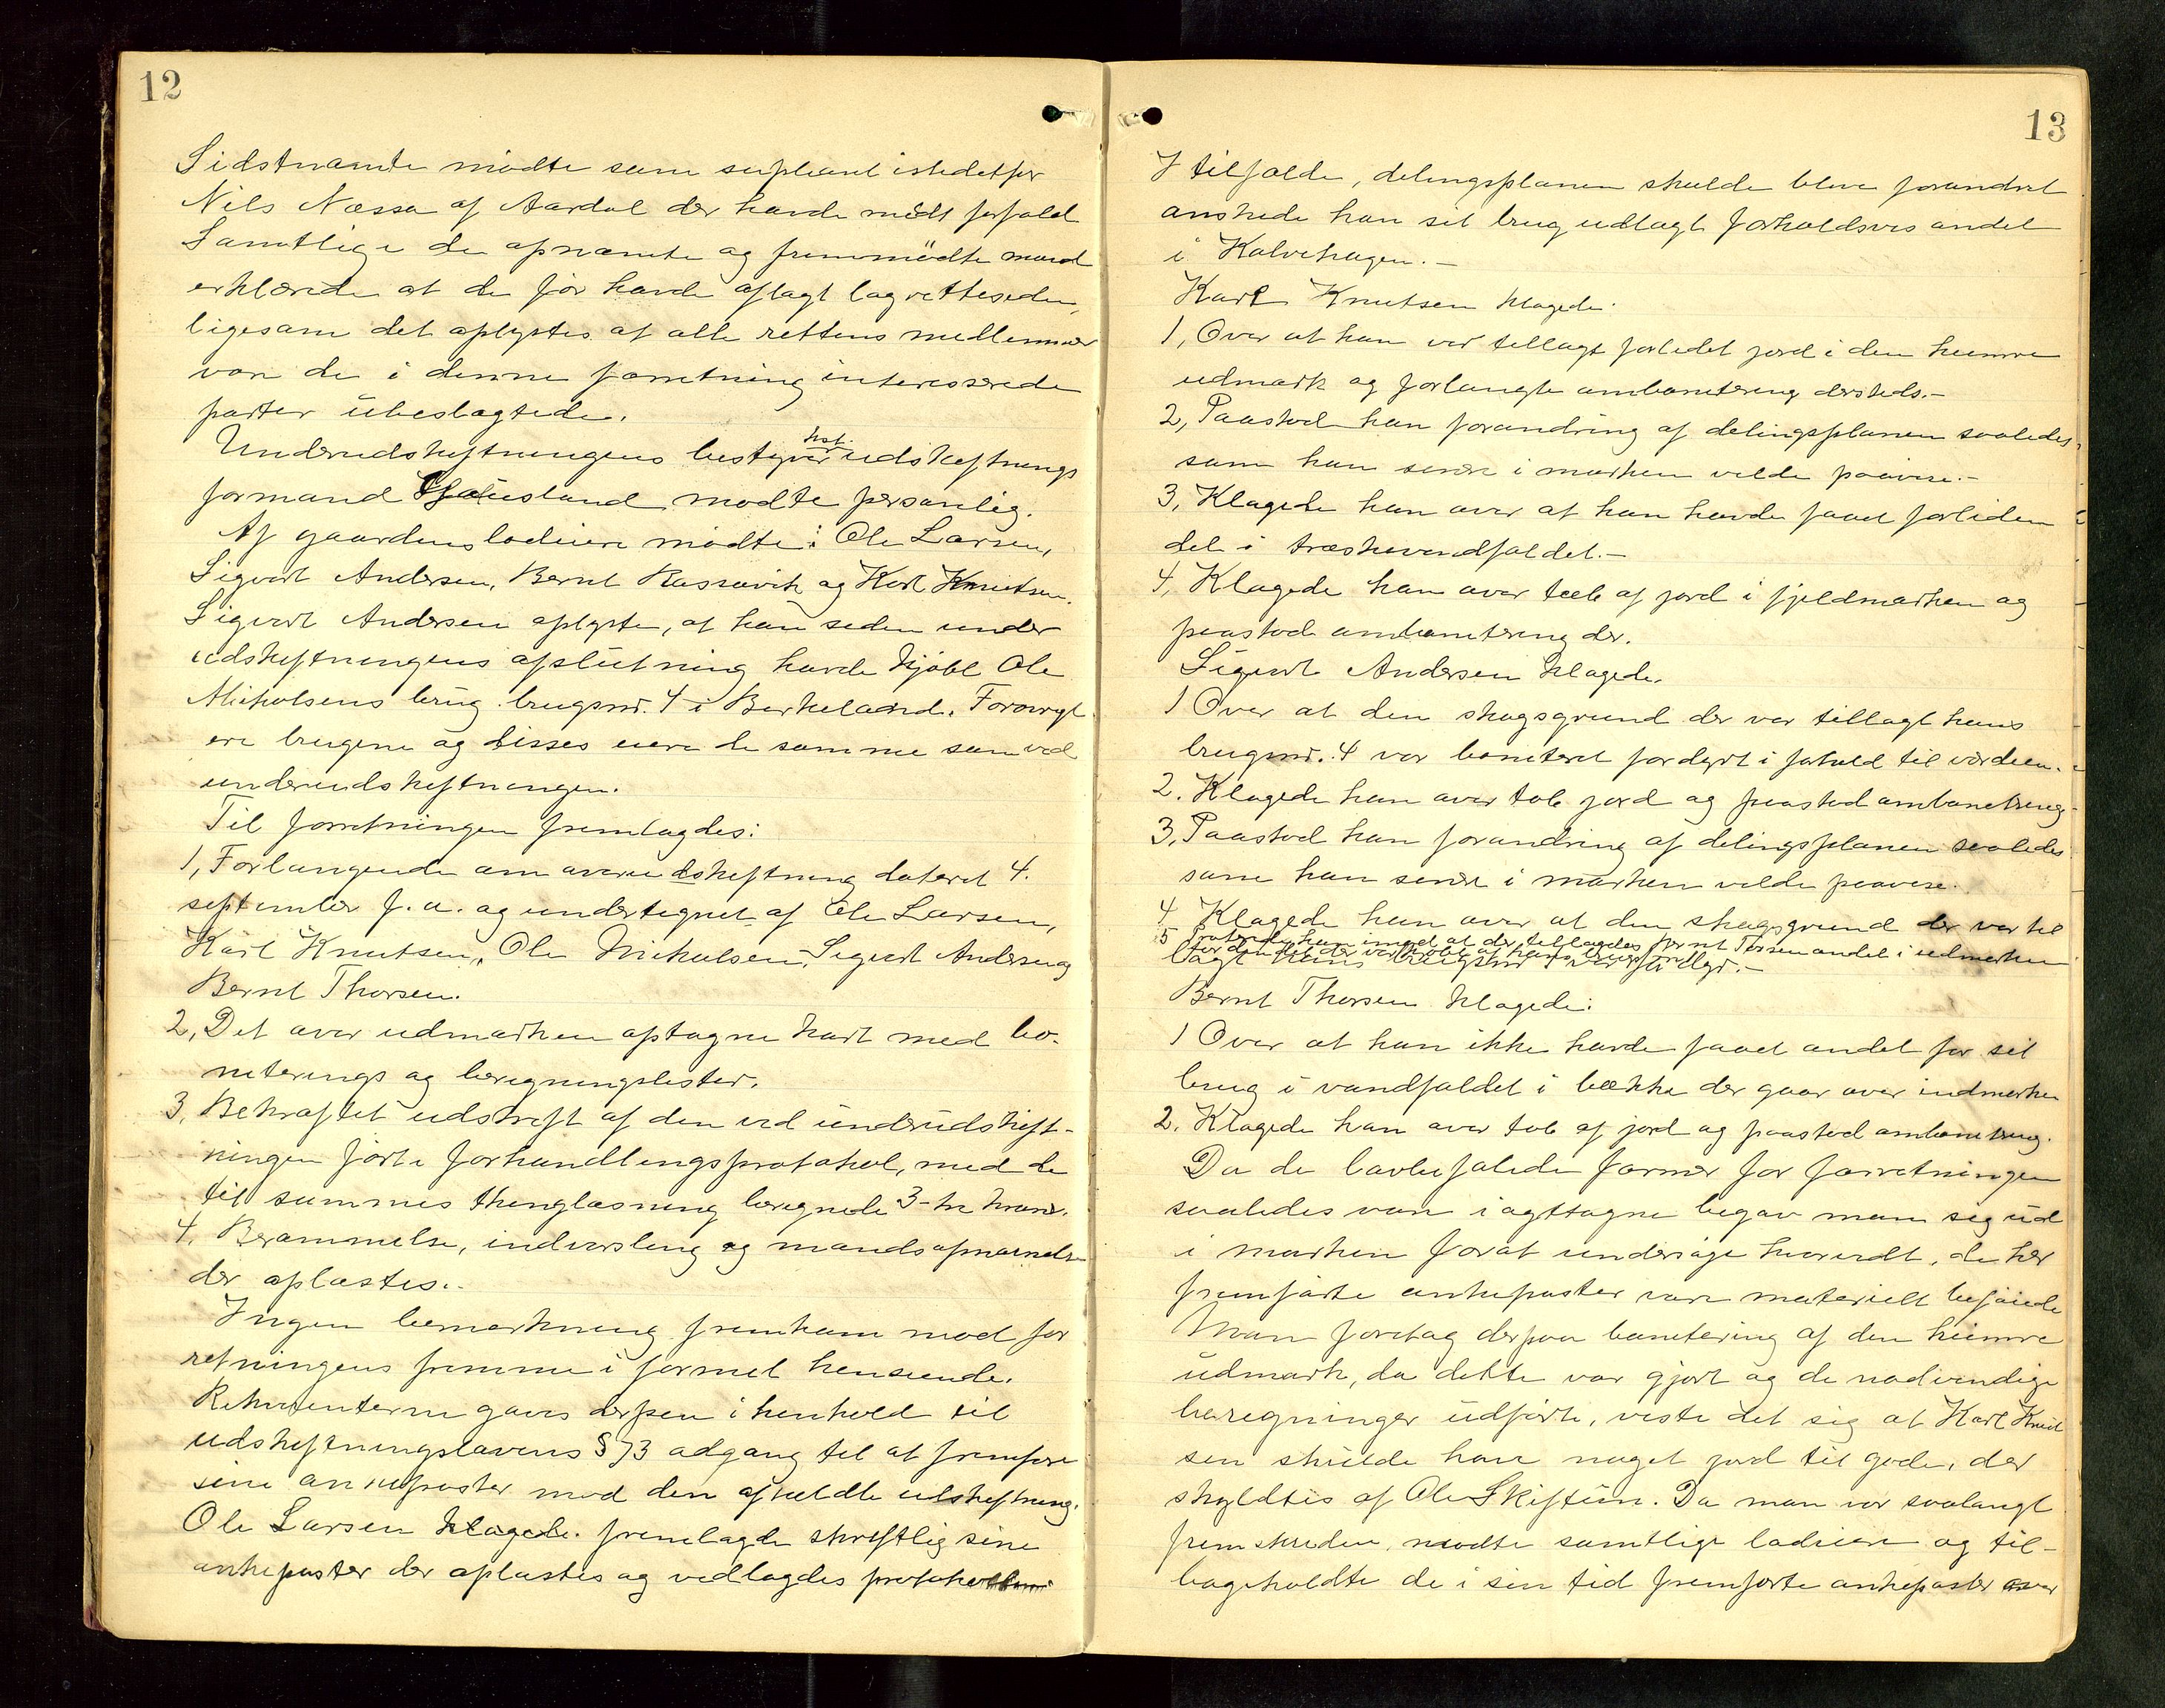 12
Sidstnævnte mødte som supleant istedetfor
Nils Næssa af Aardal der havde meldt forfald
Samtlige de opnævnte og fremmødte mænd
erklærede at de før havde aflagt lagretteseden,
ligesom det oplystes at alle rettens medlemmer
vare de i denne forretning interesserede
parter ubeslægtede.
Underudskiftningens bestyrer kst. udskiftnings
formand Hausland mødte personlig.
Af gaardens lodeiere mødte: Ole Larsen,
Sigvart Andersen, Bernt Rassavik og Karl Knutsen.
Sigvart Andersen oplyste, at han siden under
udskiftningens afslutning havde kjøbt Ole
Mikolsens brug brugsnr. 4 i Berkeland. Forøvrigt
ere brugene og disses eiere de samme som ved
underudskiftningen.
Til forretningen fremlagdes:
1, Forlangende om overudskiftning dateret 4.
september f. a. og undertegnet af Ole Larsen,
Karl Knutsen, Ole Mikalsen, Sigvart Andersen og
Bernt Thorsen.
2, Det over udmarken optagne kart med bo-
niterings og beregningslister.
3, Bekræftet udskrift af den ved underudskift-
ningen førte forhandlingsprotokol, med de
til sammes thinglæsning beregnede 3-tre kroner.
4. Berammelse, indvarsling og mandsopnævnelse
der oplæstes.
Ingen bemærkning fremkom mod for
retningens fremme i formel henseende.
Rekvirenterne gaves derpaa i henhold til
udskiftningslovens § 73 adgang til at fremføre
sine ankeposter mod den afholdte udskiftning.
Ole Larsen klagede. fremlagde skriftlig sine
ankeposter der oplæstes og vedlagdes protokollen
13
I tilfælde, delingsplanen skulde blive forandret
ønskede han sit brug udlagt forholdsvis andel
i Kalvehagen.-
Karl Knutsen klagede:
1, Over at han var tillagt forlidet jord i den heimre
udmark og forlangte ombonitering dersteds.-
2, Paastod han forandring af delingsplanen saaledes
som han senere i marken vilde paavise.-
3, Klagede han over at han havde faaet forliden
del i træskevandfaldet.-
4, Klagede han over tab af jord i fjeldmarken og
paastod ombonitering der.
Sigvart Andersen klagede.
1 Over at den skogsgrund der var tillagt hans
brugsnr. 4 var boniteret fordyrt i forhold til værdien.
2. Klagede han over tab jord og paastod ombonitering
3, Paastod han forandring af delingsplanen saaledes
som han senere i marken vilde paavise.
4 Klagede han over at den skogsgrund der var til
5 han imod at der tillagdes Bernt Torsen andel i udmarken
lagt hans brugsnr var for dyr.-
Bernt Thorsen klagede:
1 Over at han ikke havde faaet andel for sit
brug i vandfaldet i bække der gaar over indmarken
2. Klagede han over tab af jord og paastod ombonitering.
Da de lovbefalede former for forretningen
saaledes vare iagttagne begav man sig ud
i marken forat undersøge hvorvidt, de her
fremførte ankeposter vare materielt beføiede
Man foretog derpaa bonitering af den heimre
udmark, da dette var gjort og de nødvendige
beregninger udførte, viste det sig at Karl Knut
sen skulde have noget jord til gode, der
skyldtes af Ole Skiftun. Da man var saalangt
fremskreden, mødte samtlige lodeiere og til-
bageholdte de i sin tid fremførte ankeposter over